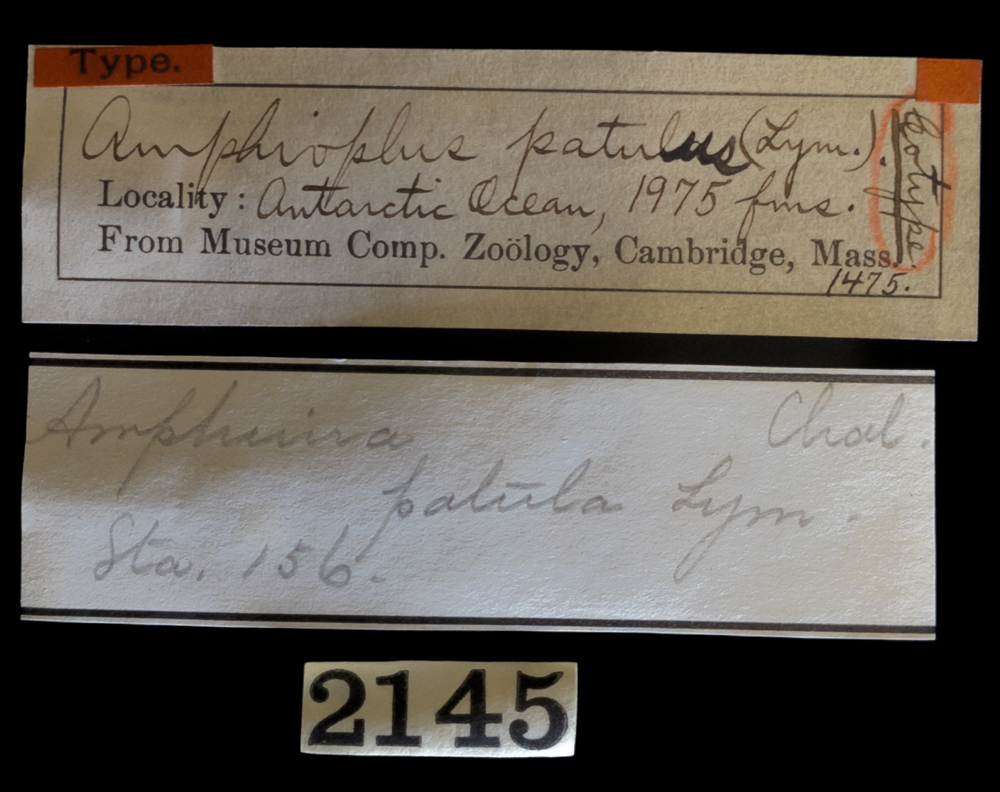 Type.
Amphioplus patulus (Lym.).
Cotype
Locality: Antarctic Ocean, 1975 fms.
From Museum Comp. Zoölogy, Cambridge, Mass.
1475.
Amphiura Chal.
patula Lym.
Sta. 156.
2145